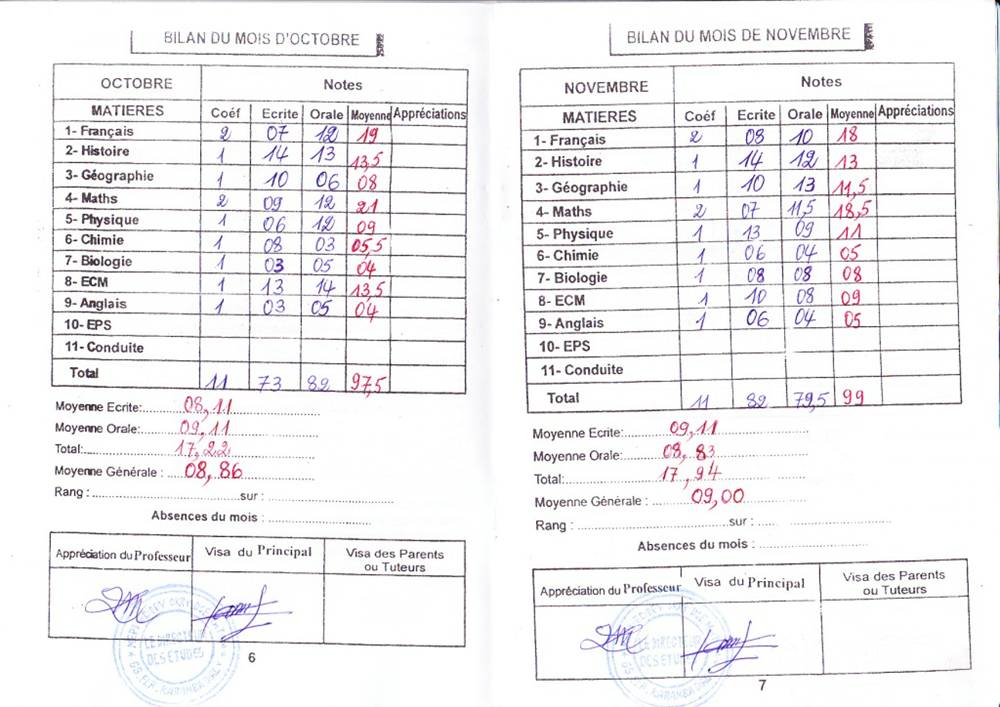 BILAN DU MOIS D'OCTOBRE
OCTOBRE Notes
MATIERES Coéf Ecrite Orale Moyenne Appréciations
1- Français 2 07 12 19
2- Histoire 1 14 13 13,5
3- Géographie 1 10 06 08
4- Maths 2 09 12 21
5- Physique 1 06 12 09
6- Chimie 1 08 03 05,5
7- Biologie 1 03 05 04
8- ECM 1 13 14 13,5
9- Anglais 1 03 05 04
10- EPS
11- Conduite
Total 11 73 82 97,5
Moyenne Ecrite: 08,11
Moyenne Orale: 09,11
Total: 17,22
Moyenne Générale : 08,86
Rang : sur :
Absences du mois :
Appréciation du Professeur Visa du Principal Visa des Parents
ou Tuteurs
LE DIRECTEUR
DES ETUDES
6
BILAN DU MOIS DE NOVEMBRE
NOVEMBRE Notes
MATIERES Coéf Ecrite Orale Moyenne Appréciations
1- Français 2 08 10 18
2- Histoire 1 14 12 13
3- Géographie 1 10 13 11,5
4- Maths 2 07 11,5 18,5
5- Physique 1 13 09 11
6- Chimie 1 06 04 05
7- Biologie 1 08 08 08
8- ECM 1 10 08 09
9- Anglais 1 06 04 05
10- EPS
11- Conduite
Total 11 82 79,5 99
Moyenne Ecrite: 09,11
Moyenne Orale: 08,83
Total: 17,94
Moyenne Générale : 09,00
Rang : sur :
Absences du mois :
Appréciation du Professeur Visa du Principal Visa des Parents
ou Tuteurs
LE DIRECTEUR
DES ETUDES
7